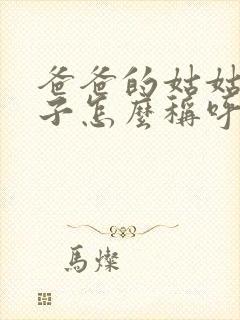 爸爸的姑姑
子怎麼稱呼
馬燦